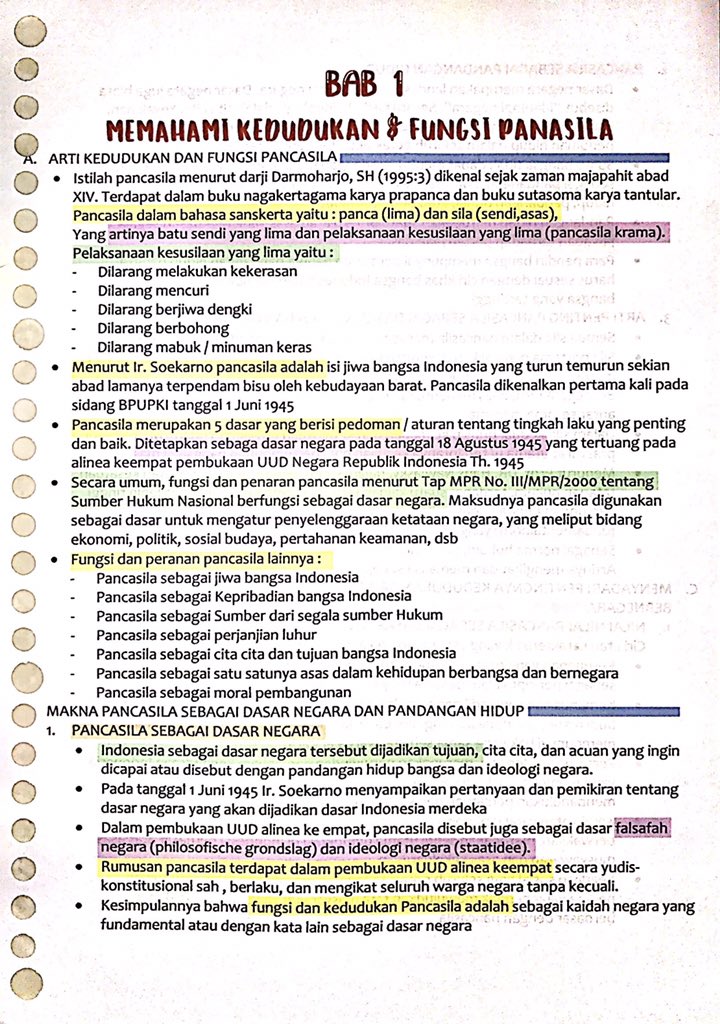 BAB 1
MEMAHAMI KEDUDUKAN & FUNGSI PANASILA
A. ARTI KEDUDUKAN DAN FUNGSI PANCASILA
• Istilah pancasila menurut darji Darmoharjo, SH (1995:3) dikenal sejak zaman majapahit abad
XIV. Terdapat dalam buku nagakertagama karya prapanca dan buku sutasoma karya tantular.
Pancasila dalam bahasa sanskerta yaitu : panca (lima) dan sila (sendi,asas),
Yang artinya batu sendi yang lima dan pelaksanaan kesusilaan yang lima (pancasila krama).
Pelaksanaan kesusilaan yang lima :
- Dilarang melakukan kekerasan
- Dilarang mencuri
- Dilarang berjiwa dengki
- Dilarang berbohong
- Dilarang mabuk / minuman keras
• Menurut Ir. Soekarno pancasila adalah isi jiwa bangsa Indonesia yang turun temurun sekian
abad lamanya terpendam bisu oleh kebudayaan barat. Pancasila dikenalkan pertama kali pada
sidang BPUPKI tanggal 1 Juni 1945
• Pancasila merupakan 5 dasar yang berisi pedoman / aturan tentang tingkah laku yang penting
dan baik. Ditetapkan sebaga dasar negara pada tanggal 18 Agustus 1945 yang tertuang pada
alinea keempat pembukaan UUD Negara Republik Indonesia Th. 1945
• Secara umum, fungsi dan penaran pancasila menurut Tap MPR No. III/MPR/2000 tentang
Sumber Hukum Nasional berfungsi sebagai dasar negara. Maksudnya pancasila digunakan
sebagai dasar untuk mengatur penyelenggaraan ketataan negara, yang meliput bidang
ekonomi, politik, sosial budaya, pertahanan keamanan, dsb
• Fungsi dan peranan pancasila lainnya :
- Pancasila sebagai jiwa bangsa Indonesia
- Pancasila sebagai Kepribadian bangsa Indonesia
- Pancasila sebagai Sumber dari segala sumber Hukum
- Pancasila sebagai perjanjian luhur
- Pancasila sebagai cita cita dan tujuan bangsa Indonesia
- Pancasila sebagai satu satunya asas dalam kehidupan berbangsa dan bernegara
- Pancasila sebagai moral pembangunan
MAKNA PANCASILA SEBAGAI DASAR NEGARA DAN PANDANGAN HIDUP
1. PANCASILA SEBAGAI DASAR NEGARA
• Indonesia sebagai dasar negara tersebut dijadikan tujuan, cita cita, dan acuan yang ingin
dicapai atau disebut dengan pandangan hidup bangsa dan ideologi negara.
• Pada tanggal 1 Juni 1945 Ir. Soekarno menyampaikan pertanyaan dan pemikiran tentang
dasar negara yang akan dijadikan dasar Indonesia merdeka
• Dalam pembukaan UUD alinea ke empat, pancasila disebut juga sebagai dasar falsafah
negara (philosofische grondslag) dan ideologi negara (staatidee).
• Rumusan pancasila terdapat dalam pembukaan UUD alinea keempat secara yudis-
konstitusional sah , berlaku, dan mengikat seluruh warga negara tanpa kecuali.
• Kesimpulannya bahwa fungsi dan kedudukan Pancasila adalah sebagai kaidah negara yang
fundamental atau dengan kata lain sebagai dasar negara